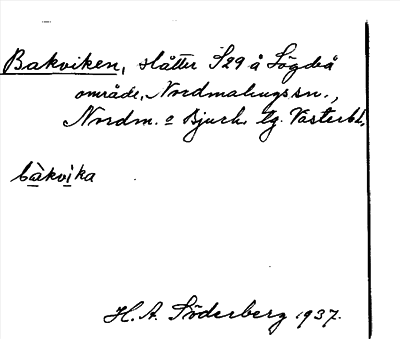 Bakviken, slåtter S29 å Lögdeå
område, Nordmalings sn.,
Nordm. o Bjurh. tg. Västerb.l.
bàkvika
H. A. Söderberg 1937.